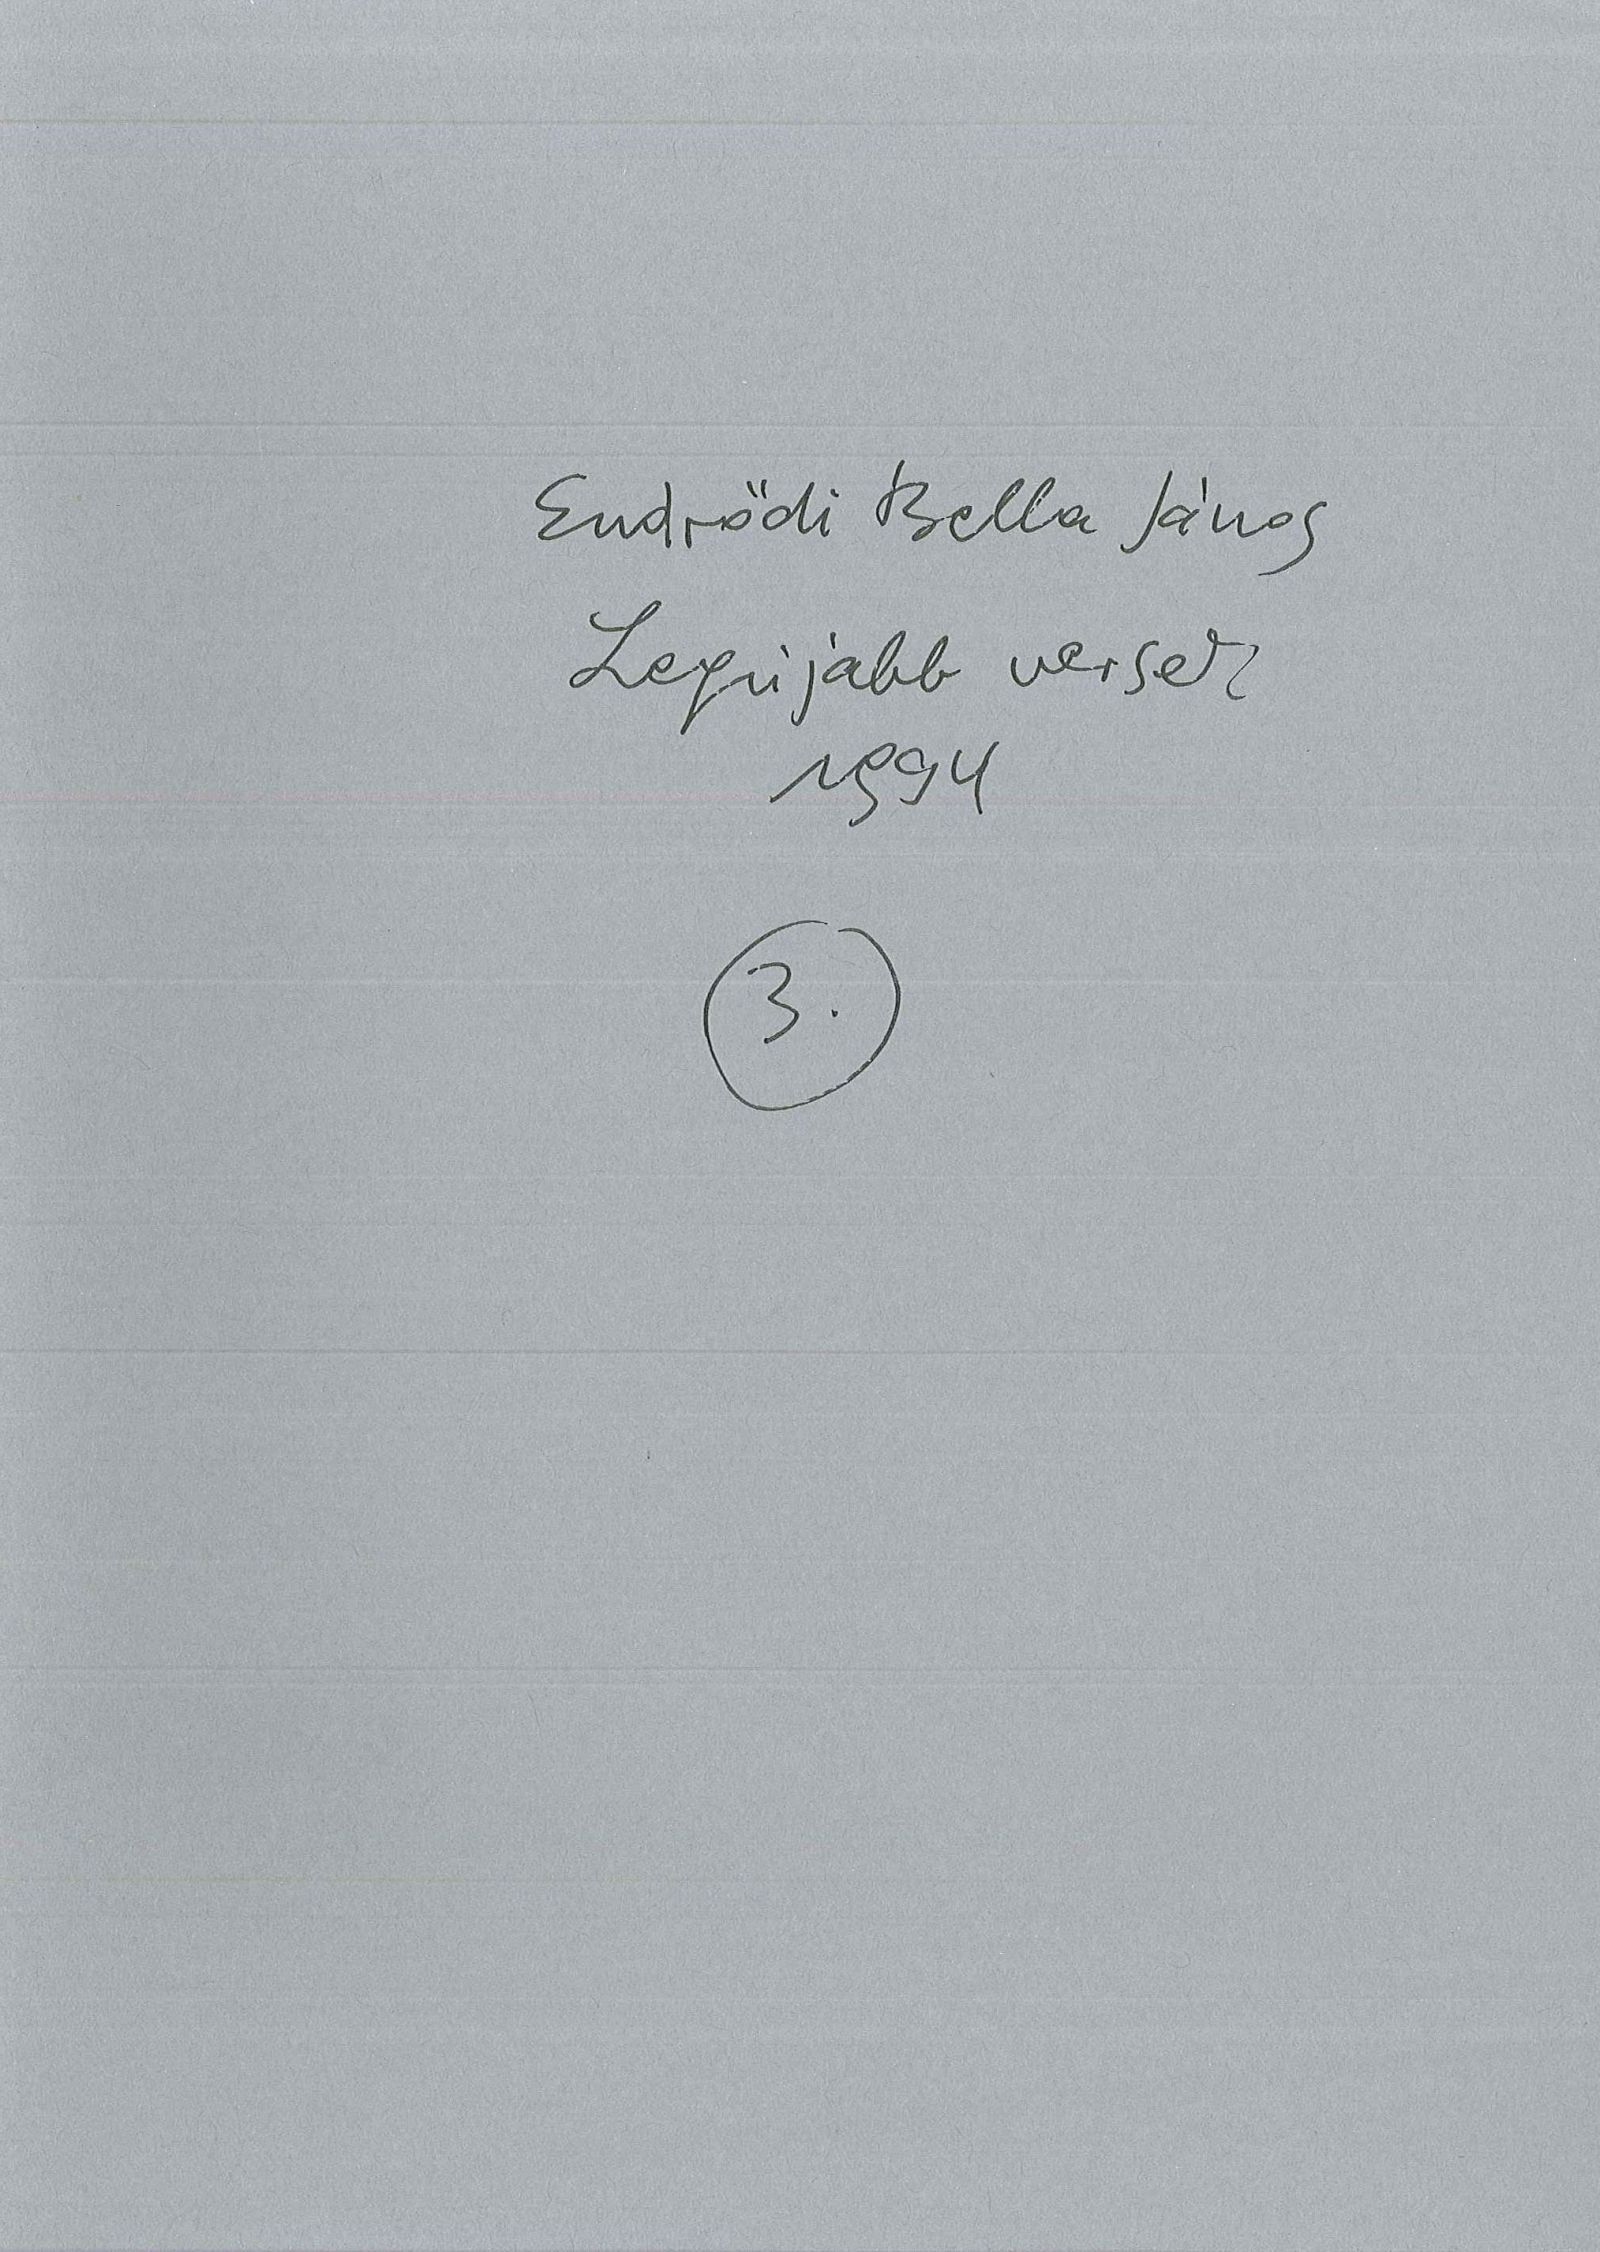 Endrődi Bella János
Legújabb versek
1994
3.